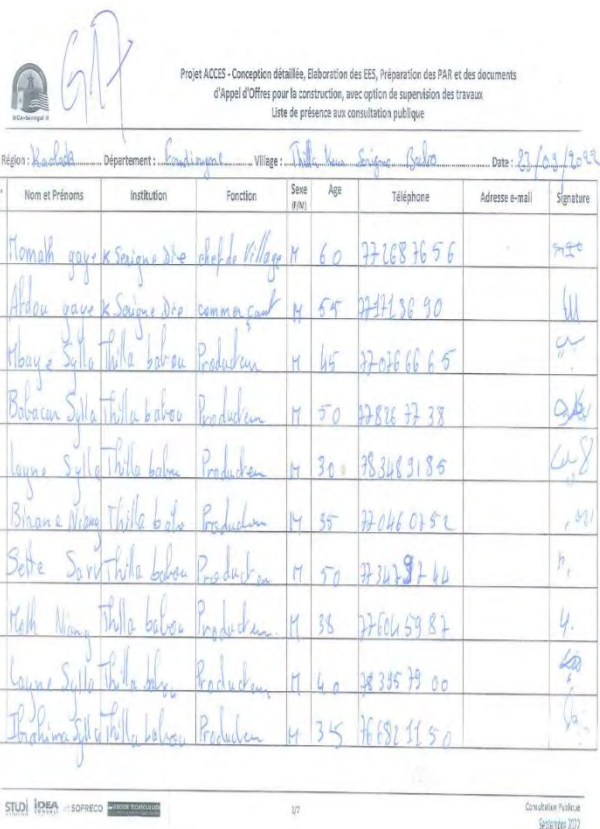 GIZ
Projet ACCES - Conception détaillée, Elaboration des EES, Préparation des PAR et des documents
d'Appel d'Offres pour la construction, avec option de supervision des travaux
Liste de présence aux consultation publique
Région : Kaolack Département : Village : Thilla Keur Serigne Babou Date : 23/09/2022
Nom et Prénoms Institution Fonction Sexe (F/M) Age Téléphone Adresse e-mail Signature
Momath gaye K Serigne Dire chef de Village M 60 772687656
Abdou gaye K Serigne Dire commerçant M 55 771713690
Mbaye Sylla Thilla babou Producteur M 45 770766665
Babacar Sylla Thilla babou Producteur M 50 778267738
Layne Sylla Thilla babou Producteur M 30 783483185
Birane Niang Thilla babo Producteur M 35 770460152
Thilla babou Producteur M 50 773479744
Niang Thilla babou Producteur M 38 776045987
Layne Sylla Thilla babou Producteur M 40 783957900
Ibrahima Sylla Thilla babou Producteur M 35 766821150
STUDI IDEA SOFRECO
1/7
Consultation Publique
Septembre 2022